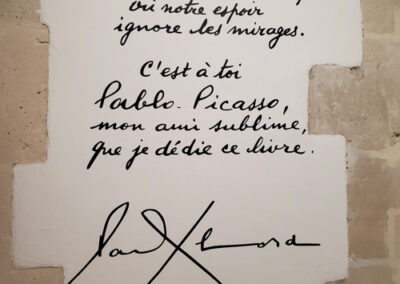 où notre espoir
ignore les mirages.
C'est à toi
Pablo Picasso,
mon ami sublime,
que je dédie ce livre.
Paul Eluard